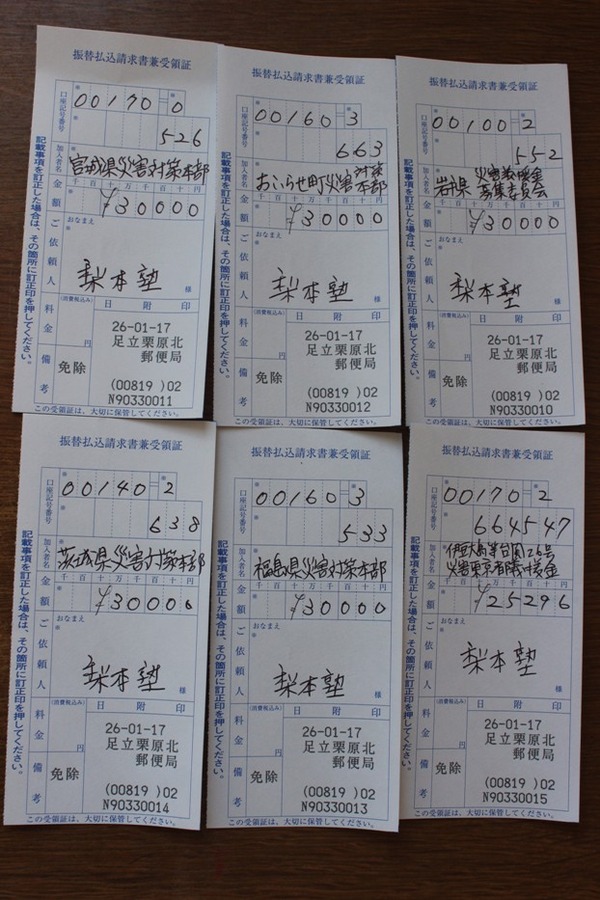 振替払込請求書兼受領証
口座記号番号
00170-0
526
加入者名
宮城県災害対策本部
金額
千百十万千百十円
¥30000
ご依頼人
おなまえ
梨本塾
様
料金
(消費税込み)
円
日附印
26-01-17
足立栗原北
郵便局
備考
免除
(00819 )02
N90330011
記載事項を訂正した場合は、その箇所に訂正印を押してください。
この受領証は、大切に保管してください。
振替払込請求書兼受領証
口座記号番号
00160-3
663
加入者名
おいらせ町災害対策本部
金額
千百十万千百十円
¥30000
ご依頼人
おなまえ
梨本塾
様
料金
(消費税込み)
円
日附印
26-01-17
足立栗原北
郵便局
備考
免除
(00819 )02
N90330012
記載事項を訂正した場合は、その箇所に訂正印を押してください。
この受領証は、大切に保管してください。
振替払込請求書兼受領証
口座記号番号
00100-2
552
加入者名
岩手県災害義援金
募集委員会
金額
千百十万千百十円
¥30000
ご依頼人
おなまえ
梨本塾
様
料金
(消費税込み)
円
日附印
26-01-17
足立栗原北
郵便局
備考
免除
(00819 )02
N90330010
記載事項を訂正した場合は、その箇所に訂正印を押してください。
この受領証は、大切に保管してください。
振替払込請求書兼受領証
口座記号番号
00140-2
638
加入者名
茨城県災害対策本部
金額
千百十万千百十円
¥30000
ご依頼人
おなまえ
梨本塾
様
料金
(消費税込み)
円
日附印
26-01-17
足立栗原北
郵便局
備考
免除
(00819 )02
N90330014
記載事項を訂正した場合は、その箇所に訂正印を押してください。
この受領証は、大切に保管してください。
振替払込請求書兼受領証
口座記号番号
00160-3
533
加入者名
福島県災害対策本部
金額
千百十万千百十円
¥30000
ご依頼人
おなまえ
梨本塾
様
料金
(消費税込み)
円
日附印
26-01-17
足立栗原北
郵便局
備考
免除
(00819 )02
N90330013
記載事項を訂正した場合は、その箇所に訂正印を押してください。
この受領証は、大切に保管してください。
振替払込請求書兼受領証
口座記号番号
00170-2
664547
加入者名
伊豆大島等台風26号
災害東京都義援金
金額
千百十万千百十円
¥25296
ご依頼人
おなまえ
梨本塾
様
料金
(消費税込み)
円
日附印
26-01-17
足立栗原北
郵便局
備考
免除
(00819 )02
N90330015
記載事項を訂正した場合は、その箇所に訂正印を押してください。
この受領証は、大切に保管してください。